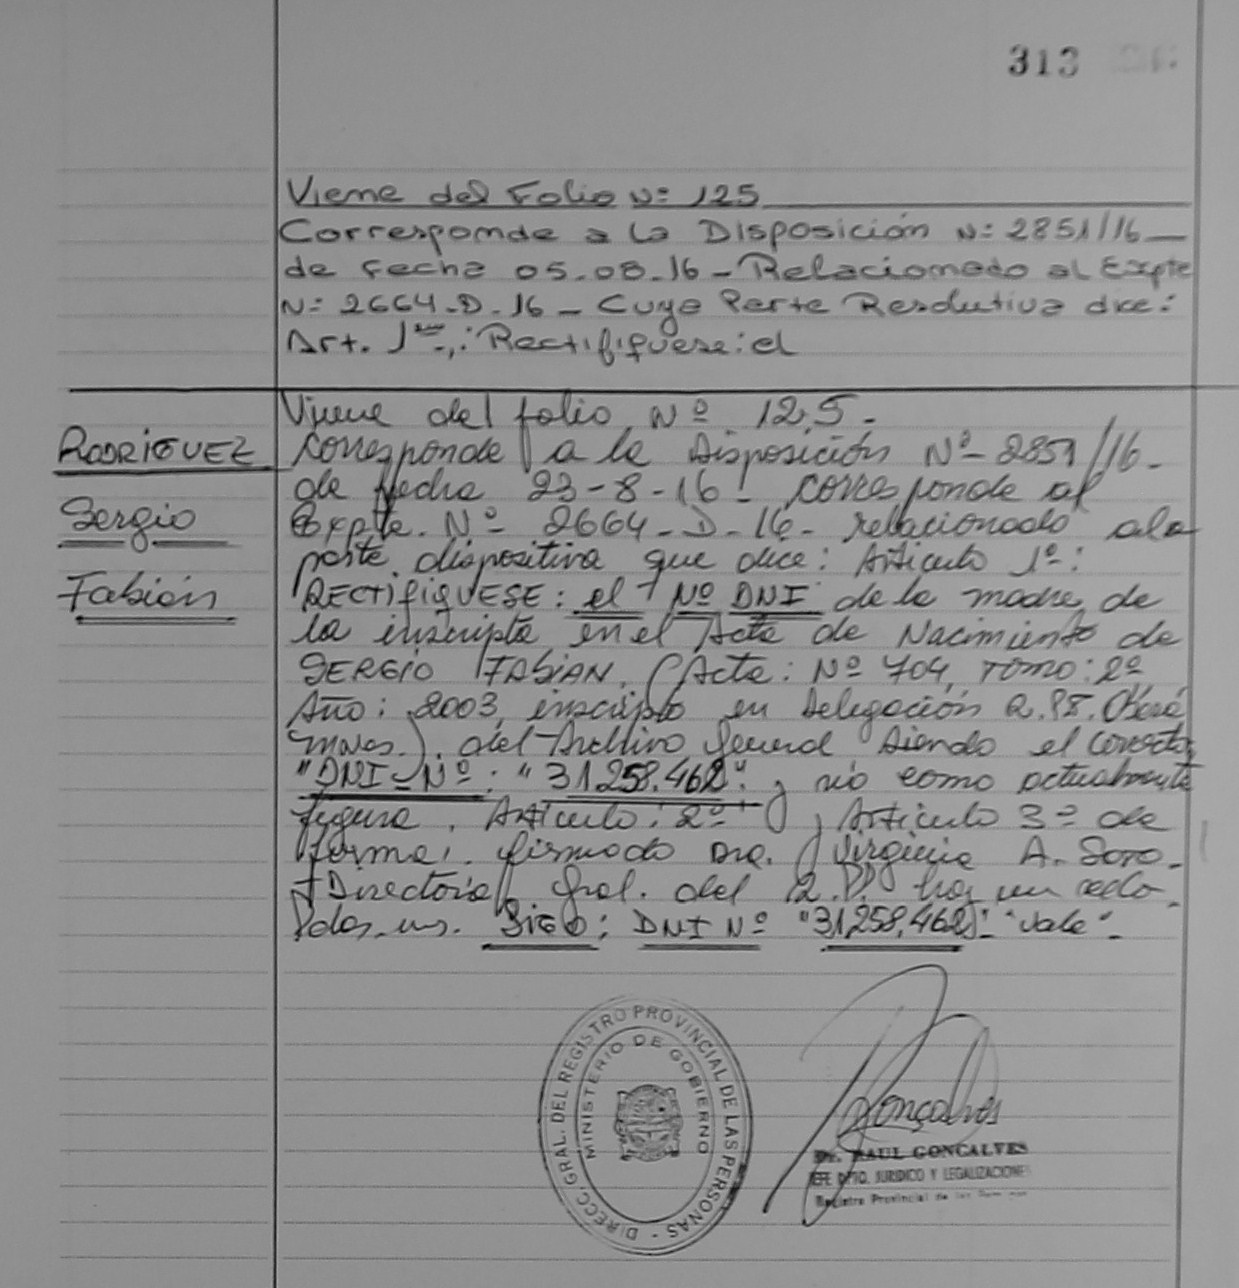 313
Viene del Folio Nº 125
Corresponde a la Disposición Nº 2851/16
de Fecha 05.08.16 - Relacionado al Expte
Nº 2664-D-16 - Cuya Parte Resolutiva dice:
Art. 1º.,: Rectifíquese: el
Viene del folio Nº 125.-
RODRIGUEZ
Corresponde a la Disposición Nº 2851/16-
de fecha 23-8-16! Corresponde al
Sergio
Expte. Nº 2664-D-16- relacionado a la
parte dispositiva que dice: Artículo 1º:
Fabián
RECTIFIQUESE: el Nº DNI de la madre de
la inscripta en el Acta de Nacimiento de
SERGIO FABIAN, (Acta: Nº 704, Tomo: 2º
Año: 2003, inscripto en Delegación R.PS. Oberá
Mnes.). del Archivo General Siendo el Correcto
"DNI-Nº: "31.258.462" y nó como actualmente
figura. Artículo: 2º y Artículo 3º de
forma. firmado Dra. Virginia A. Soto.
Directora Gral. del R.PP. hay un sello.
Pdas. Ms. DNI Nº "31.258.462": "Vale".
DIRECC GRAL. DEL REGISTRO PROVINCIAL DE LAS PERSONAS -
MINISTERIO DE GOBIERNO
Goncalves
Dr. RAUL GONCALVES
JEFE DPTO. JURIDICO Y LEGALIZACIONES
Registro Provincial de las Personas